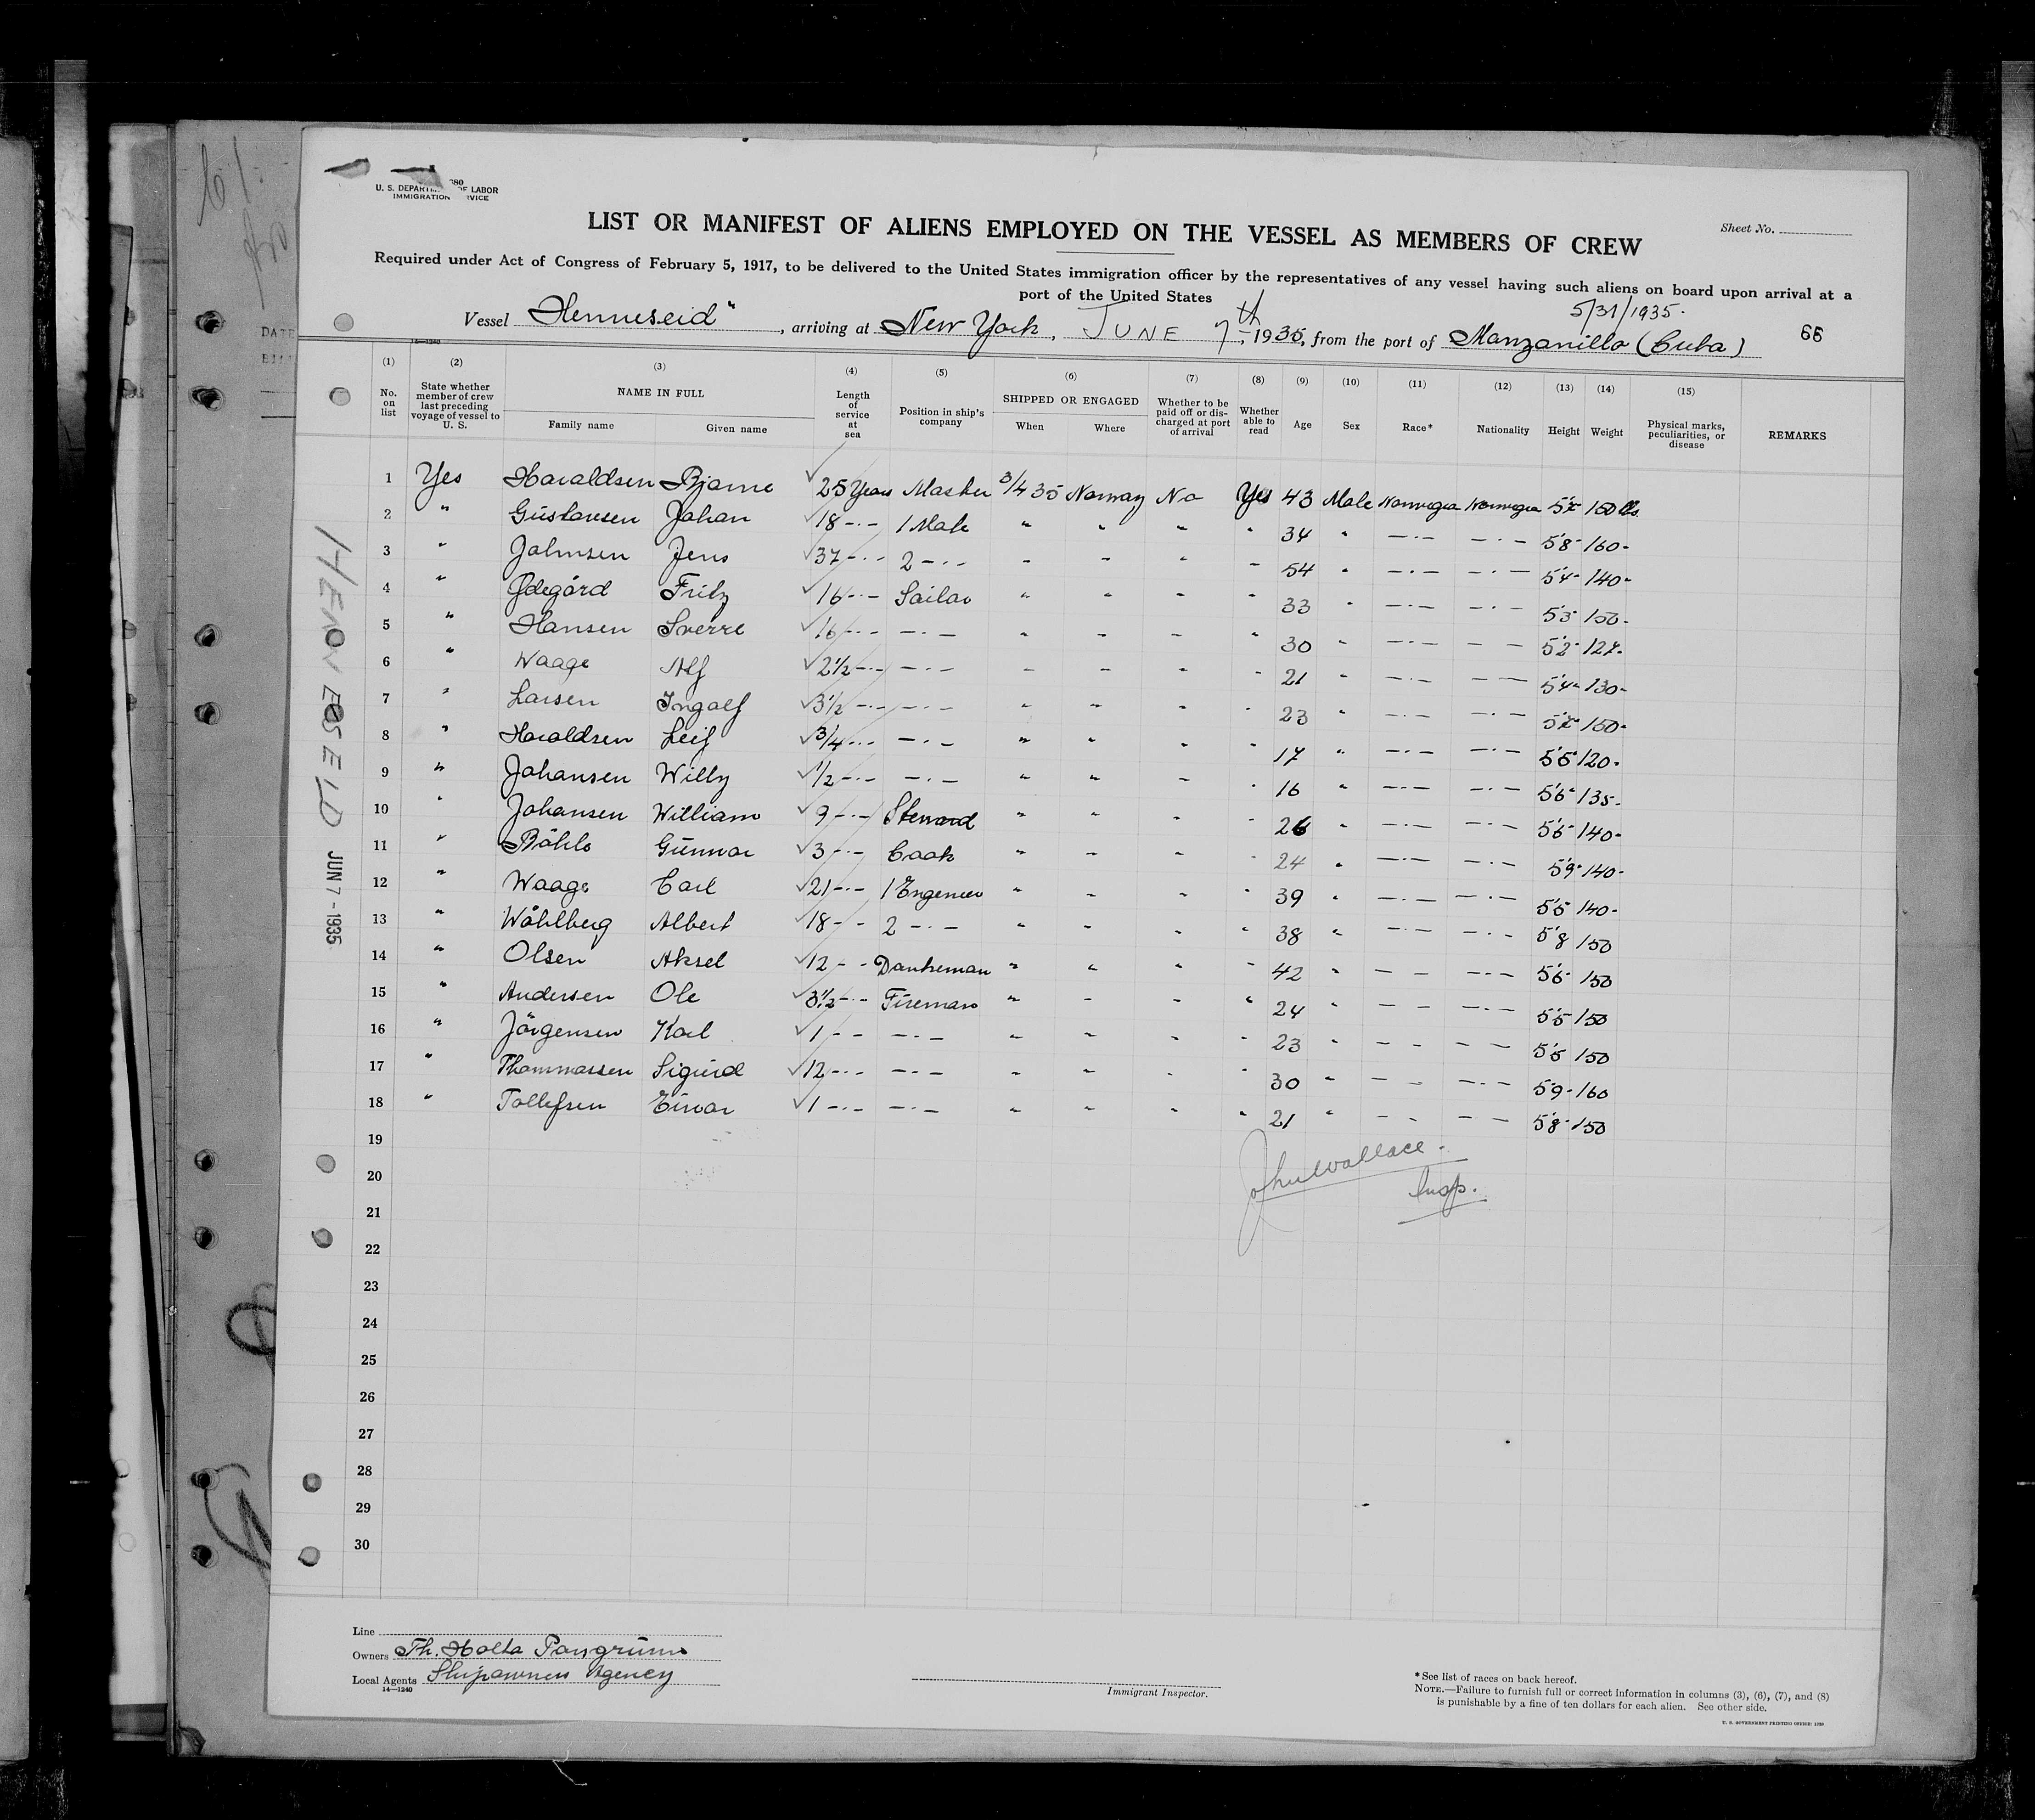 U. S. DEPARTM OF LABOR
IMMIGRATION RVICE
LIST OR MANIFEST OF ALIENS EMPLOYED ON THE VESSEL AS MEMBERS OF CREW
Sheet No.
Required under Act of Congress of February 5, 1917, to be delivered to the United States immigration officer by the representatives of any vessel having such aliens on board upon arrival at a
port of the United States
5/31/1935.
Vessel Henneseid", arriving at New York, JUNE 7th, 1935, from the port of Manzanillo (Cuba) 66
14—1240
(1) (2) (3) (4) (5) (6) (7) (8) (9) (10) (11) (12) (13) (14) (15)
No. on list State whether member of crew last preceding voyage of vessel to U. S. NAME IN FULL Family name Given name Length of service at sea Position in ship's company SHIPPED OR ENGAGED When Where Whether to be paid off or discharged at port of arrival Whether able to read Age Sex Race* Nationality Height Weight Physical marks, peculiarities, or disease REMARKS
1 Yes Haraldsen Bjarne 25 Years Master 3/4 35 Norway No Yes 43 Male Norwegia Norwegia 150 lbs
2 " Gustavsen Johan 18 -·- 1 Mate " " " " 34 " -·- -·- 5'8" 160-
3 " Johnsen Jens 37 -·- 2 -·- " " " " 54 " -·- -·- 5'4" 140-
4 " Ødegård Fritz 16 -·- Sailor " " " " 33 " -·- -·- 5'5" 150-
5 " Hansen Sverre 16 -·- -·- " " " " 30 " -·- - - 5'2" 127-
6 " Waage Alf 2½ -·- -·- " " " " 21 " -·- - - 5'4" 130-
7 " Larsen Ingolf 3½ -·- -·- " " " " 23 " -·- -·- 150-
8 " Haraldsen Leif 3/4 -·- -·- " " " " 17 " -·- -·- 5'5" 120-
9 " Johansen Willy ½ -·- -·- " " " " 16 " -·- -·- 5'6" 135-
10 " Johansen William 9 -·- Steward " " " " 26 " -·- -·- 5'5" 140-
11 " Båhlo Gunnar 3 -·- Cook " " " " 24 " -·- -·- 5'9" 140-
12 " Waage Carl 21 -·- 1 Engeneer " " " " 39 " -·- -·- 5'5" 140-
13 " Wåhlberg Albert 18 - - 2 -·- " " " " 38 " -·- -·- 5'8 150
14 " Olsen Aksel 12 - - Dankeman " " " " 42 " - - -·- 5'6" 150
15 " Andersen Ole 3½ -·- Fireman " " " " 24 " - - -·- 5'5 150
16 " Jörgensen Karl 1 - - -·- " " " " 23 " - - - - 5'5 150
17 " Thommassen Sigurd 12 -·- -·- " " " " 30 " - - -·- 5'9- 160
18 " Tollefsen Einar 1 -·- -·- " " " " 21 " - - - - 5'8" 150
19
20
21
22
23
24
25
26
27
28
29
30
John Wallace.
Insp.
HENNESEID
JUN 7 - 1935
Line
Owners Th. Holta Porsgrunn
Local Agents Shipowners Agency
14—1240
Immigrant Inspector.
*See list of races on back hereof.
NOTE.—Failure to furnish full or correct information in columns (3), (6), (7), and (8)
is punishable by a fine of ten dollars for each alien. See other side.
U. S. GOVERNMENT PRINTING OFFICE: 1929